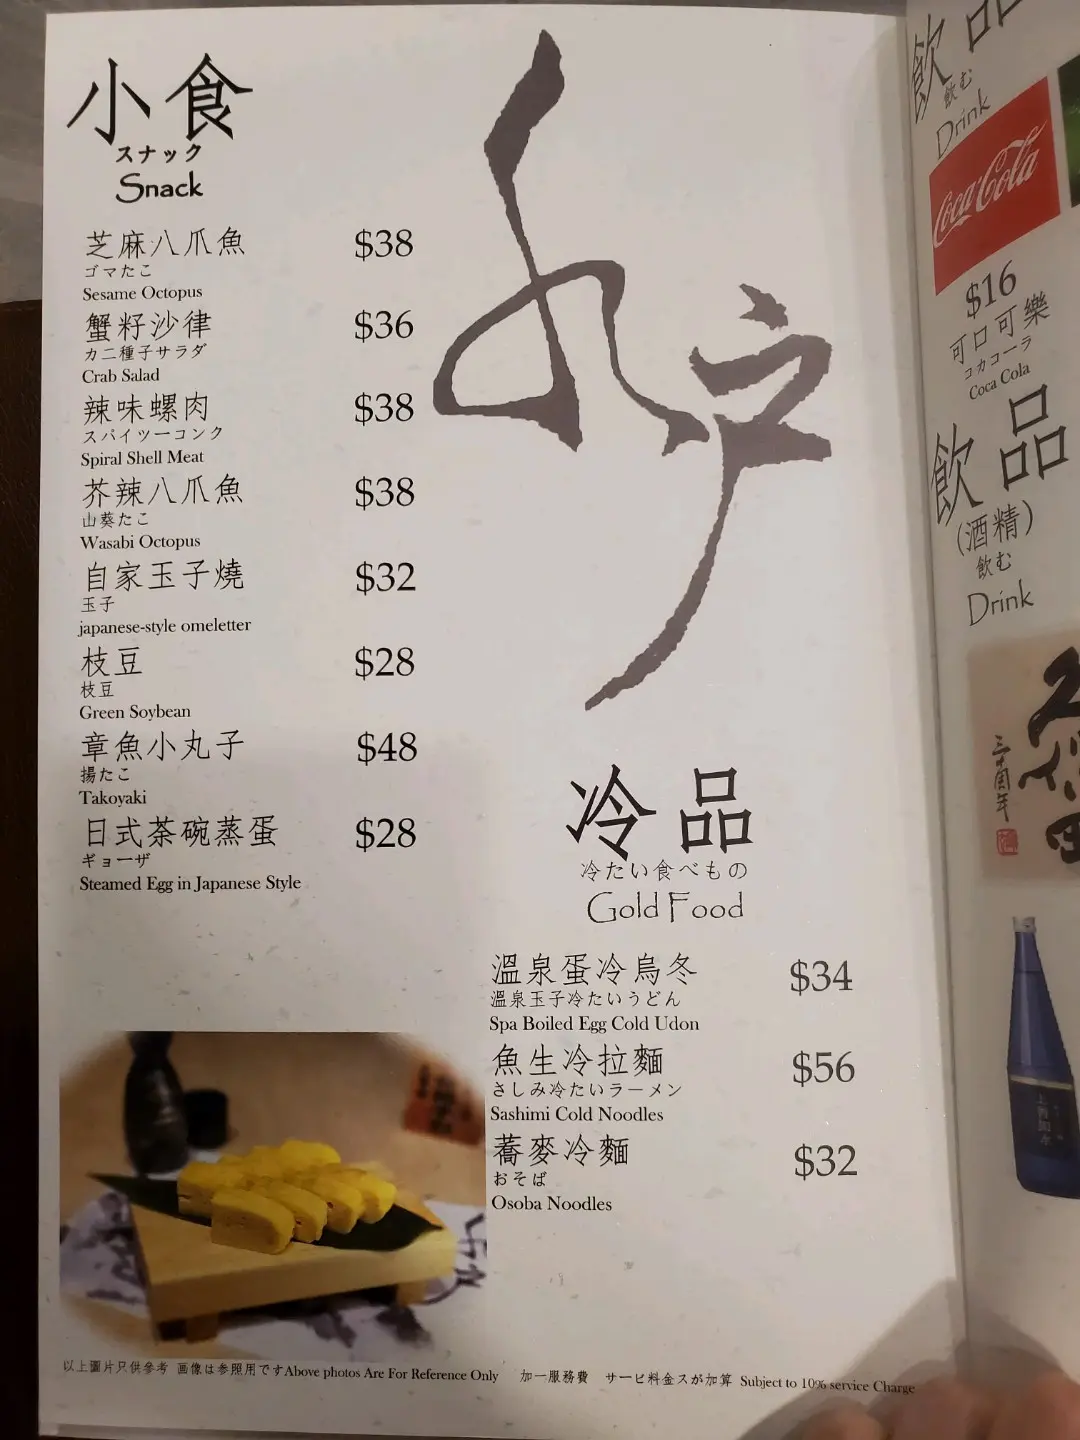 小食
スナック
Snack
芝麻八爪魚 $38
ゴマたこ
Sesame Octopus
蟹籽沙律 $36
カニ種子サラダ
Crab Salad
辣味螺肉 $38
スパイツーコンク
Spiral Shell Meat
芥辣八爪魚 $38
山葵たこ
Wasabi Octopus
自家玉子燒 $32
玉子
japanese-style omeletter
枝豆 $28
枝豆
Green Soybean
章魚小丸子 $48
揚たこ
Takoyaki
日式茶碗蒸蛋 $28
ギョーザ
Steamed Egg in Japanese Style
冷品
冷たい食べもの
Gold Food
溫泉蛋冷烏冬 $34
溫泉玉子冷たいうどん
Spa Boiled Egg Cold Udon
魚生冷拉麵 $56
さしみ冷たいラーメン
Sashimi Cold Noodles
蕎麥冷麵 $32
おそば
Osoba Noodles
以上圖片只供參考 画像は参照用ですAbove photos Are For Reference Only 加一服務費 サービ料金スが加算 Subject to 10% service Charge
飲品
飲む
Drink
Coca-Cola
$16
可口可樂
コカコーラ
Coca Cola
飲品
(酒精)
飲む
Drink